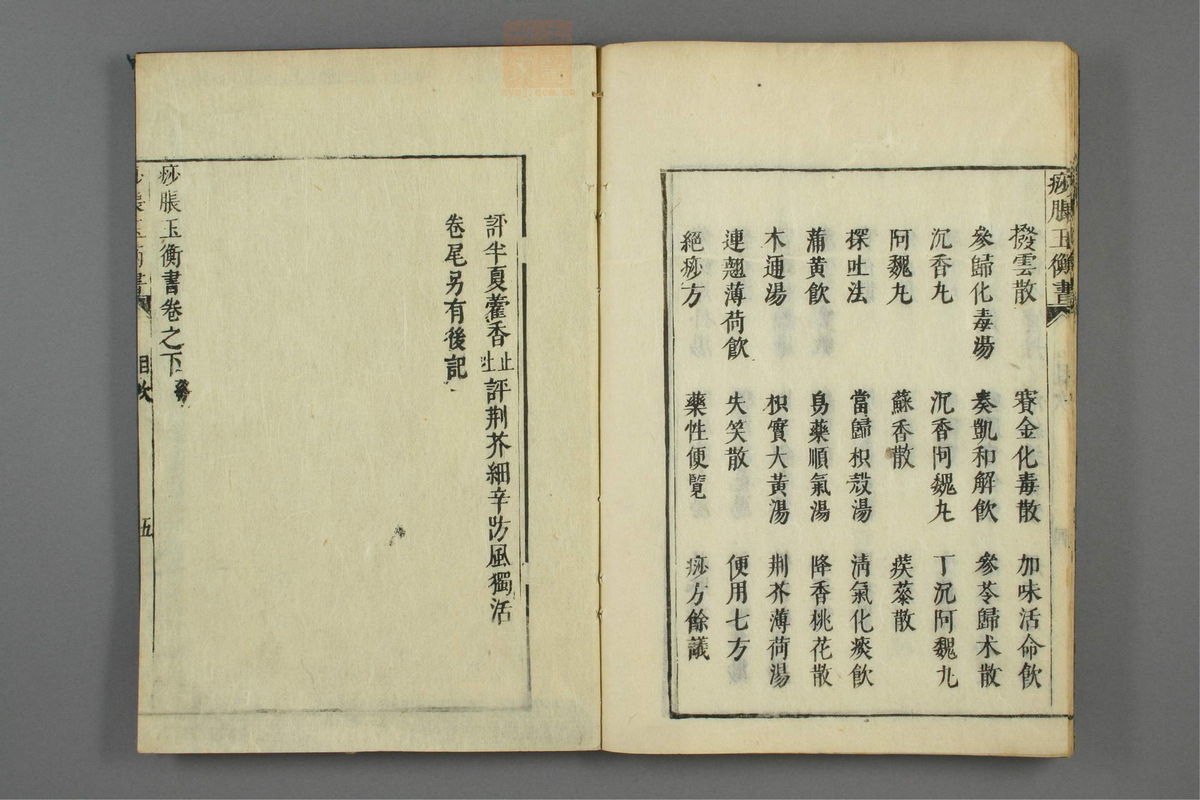 痧脹玉衡書
撥雲散 賽金化毒散 加味活命飲
參歸化毒湯 奏凱和解飲 參苓歸术散
沉香丸 沉香阿魏丸 丁沉阿魏丸
阿魏丸 蘇香散 蒺藜散
探吐法 當歸枳殻湯 清氣化痰飲
蒲黄飲 烏藥順氣湯 降香桃花散
木通湯 枳實大黃湯 荆芥薄荷湯
連翹薄荷飲 失笑散 便用七方
絕痧方 藥性便覽 痧方餘議
評半夏藿香止吐評荆芥細辛防風獨活
卷尾另有後記
痧脹玉衡書卷之下終
痧脹玉衡書 目次 五